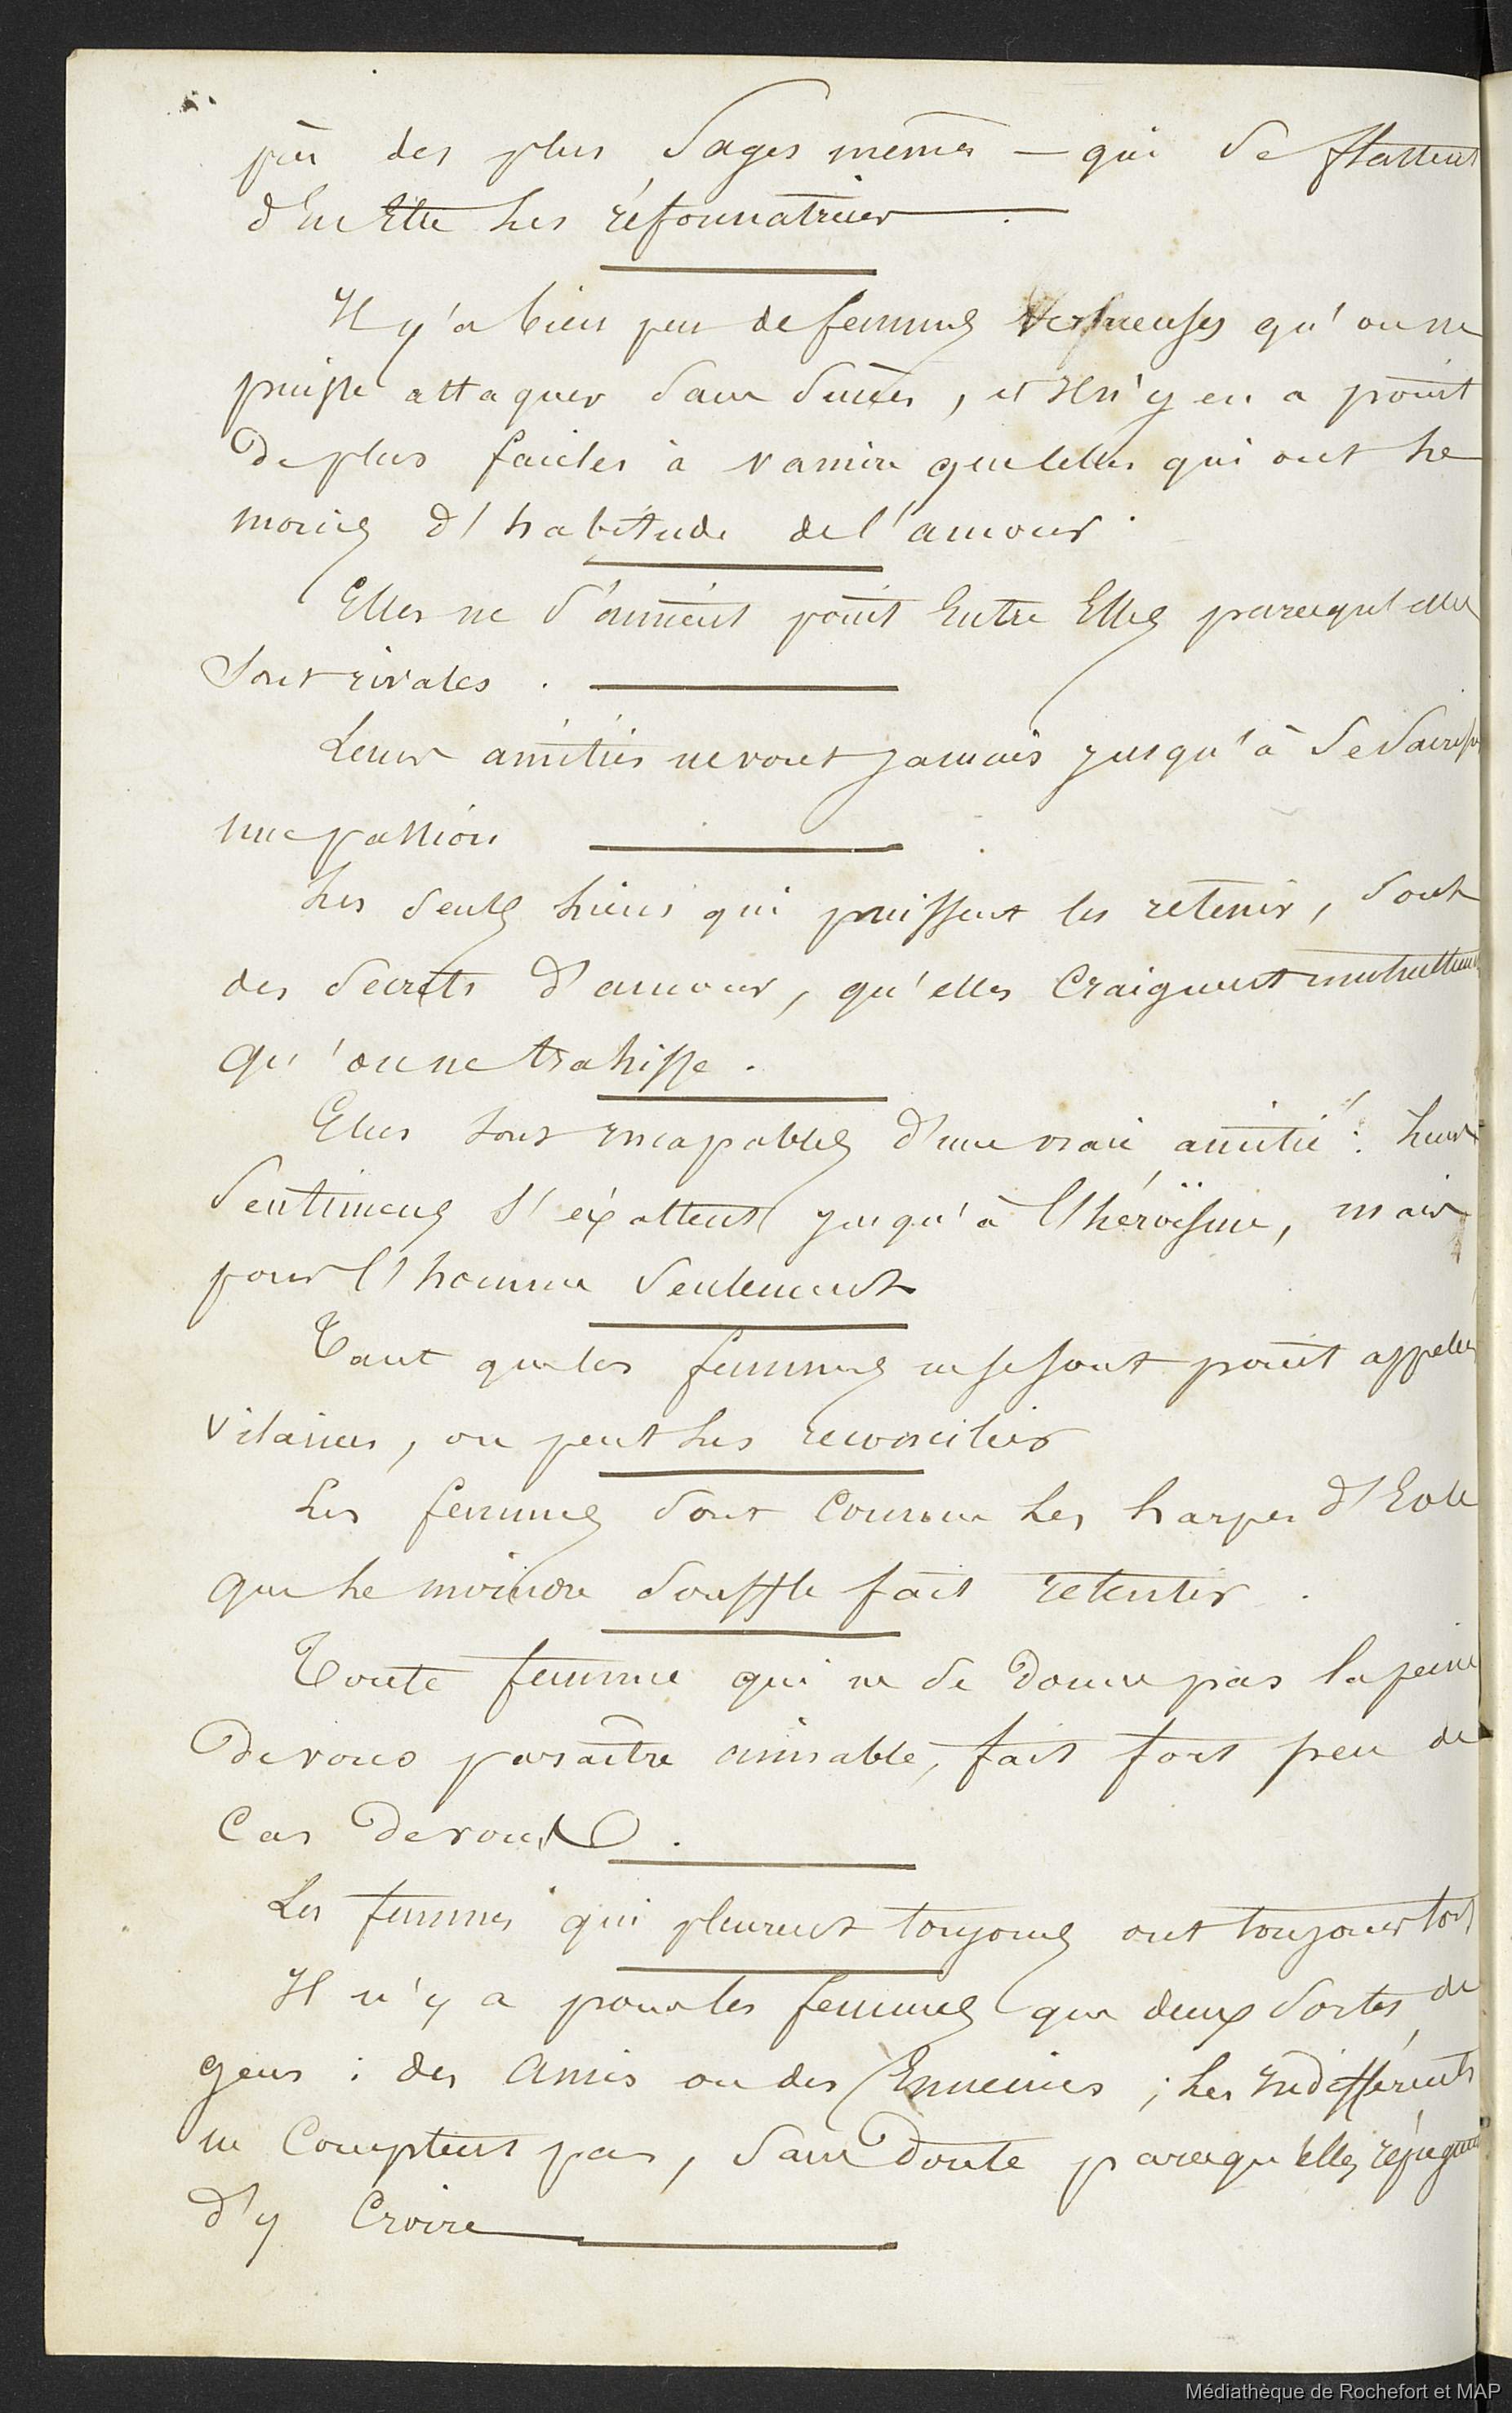 par des plus Sages mêmes — qui Se flattent
d'En Etre Les réformatrices.
Il y'a bien peu de femmes Vertueuses qu'on ne
puisse attaquer Sans Succès, et Il n'y en a point
De plus faciles à vaincre que celles qui ont Le
moins d'habitude de l'amour.
Elles ne S'aiment point Entre Elles parcequ'elles
Sont rivales.
Leurs amitiés ne vont jamais jusqu'à Se Sacrifier
une passion
Les Seuls Liens qui puissent les retenir, Sont
des Secrets d'amour, qu'elles Craignent mutuellement
qu'on ne trahisse.
Elles Sont Incapables d'une vraie amitié : Leurs
Sentimens S'éxaltent jusqu'à l'héroïsme, mais
pour l'homme Seulement
Tant que les femmes ne se sont point appelées
vilaines, on peut Les reconcilier
Les femmes Sont Comme Les harpes d'Eole
que Le moindre Souffle fait retentir.
Toute femme qui ne Se Donne pas la peine
De vous paraître aimable, fait fort peu de
Cas De vous.
Les femmes qui pleurent toujours ont toujours tort
Il n'y a pour les femmes que deux Sortes de
gens : des Amis ou des Ennemies ; Les Indifférents
ne Comptent pas, Sans Doute parcequ'Elles répugnent
d'y Croire
Médiathèque de Rochefort et MAP